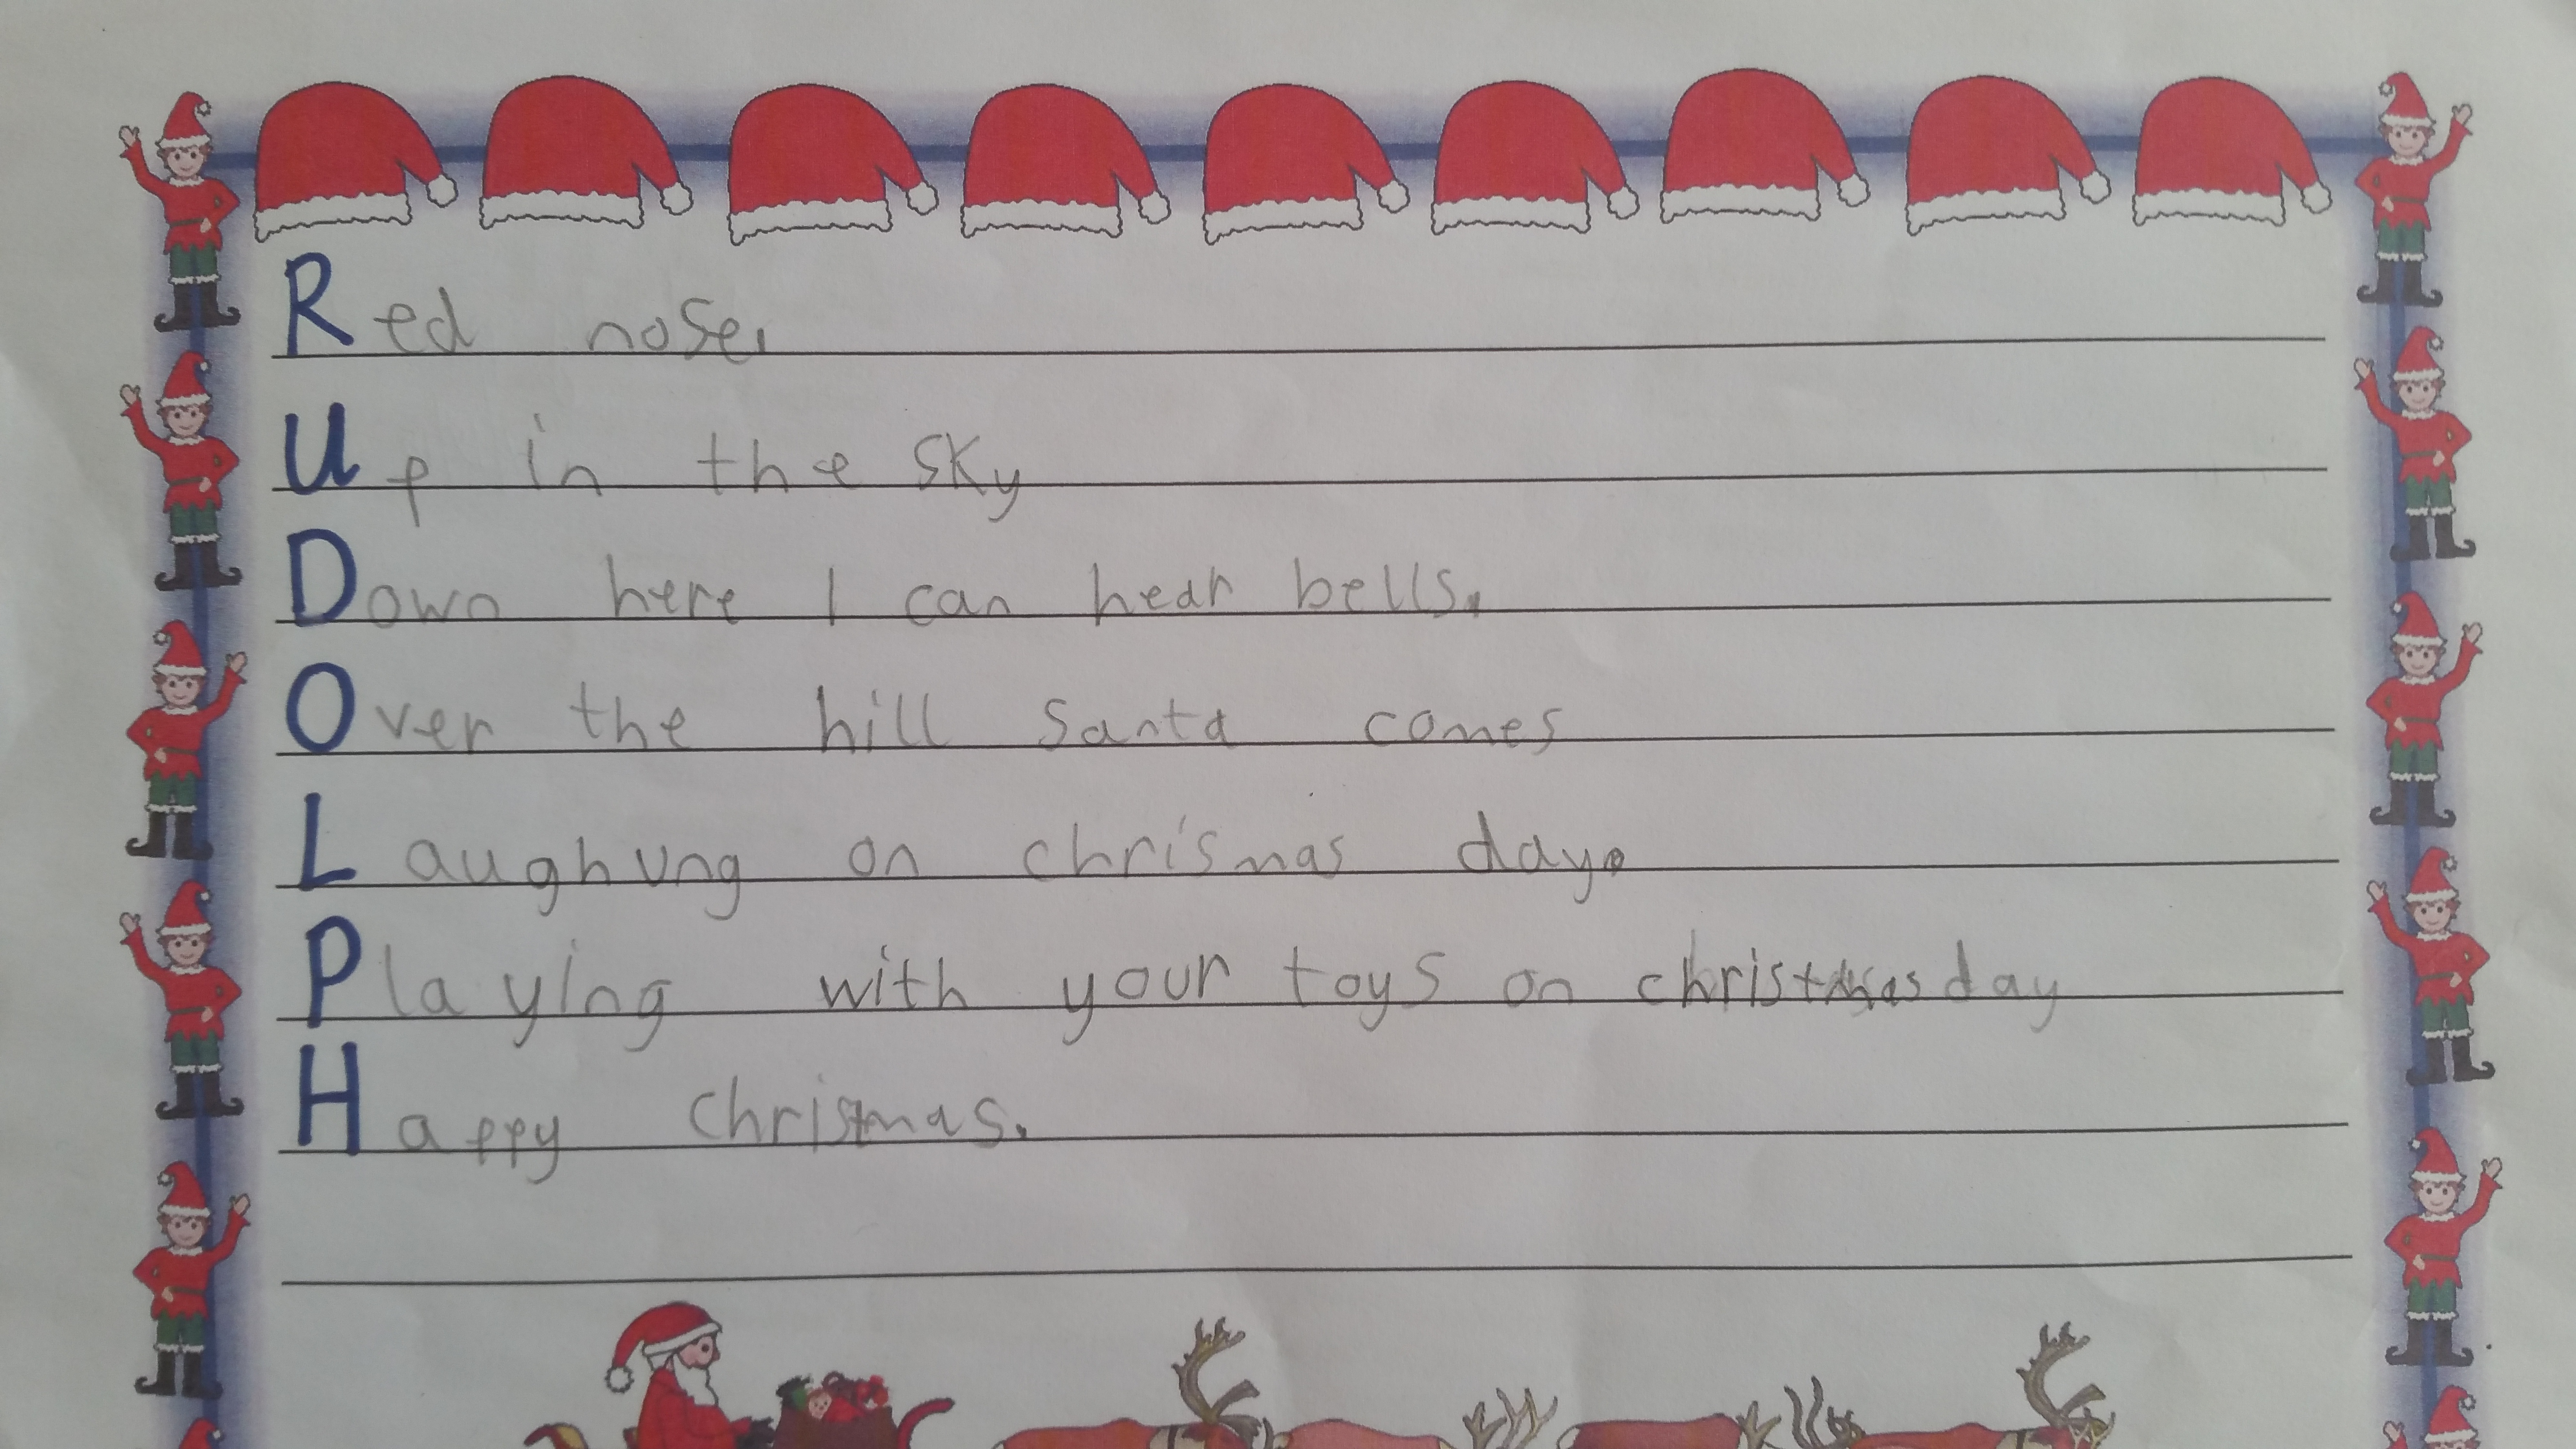 Red nose,
Up in the sky
Down here I can hear bells.
Over the hill Santa comes
Laughung on chrismas day.
Playing with your toys on christmas day
Happy Christmas.